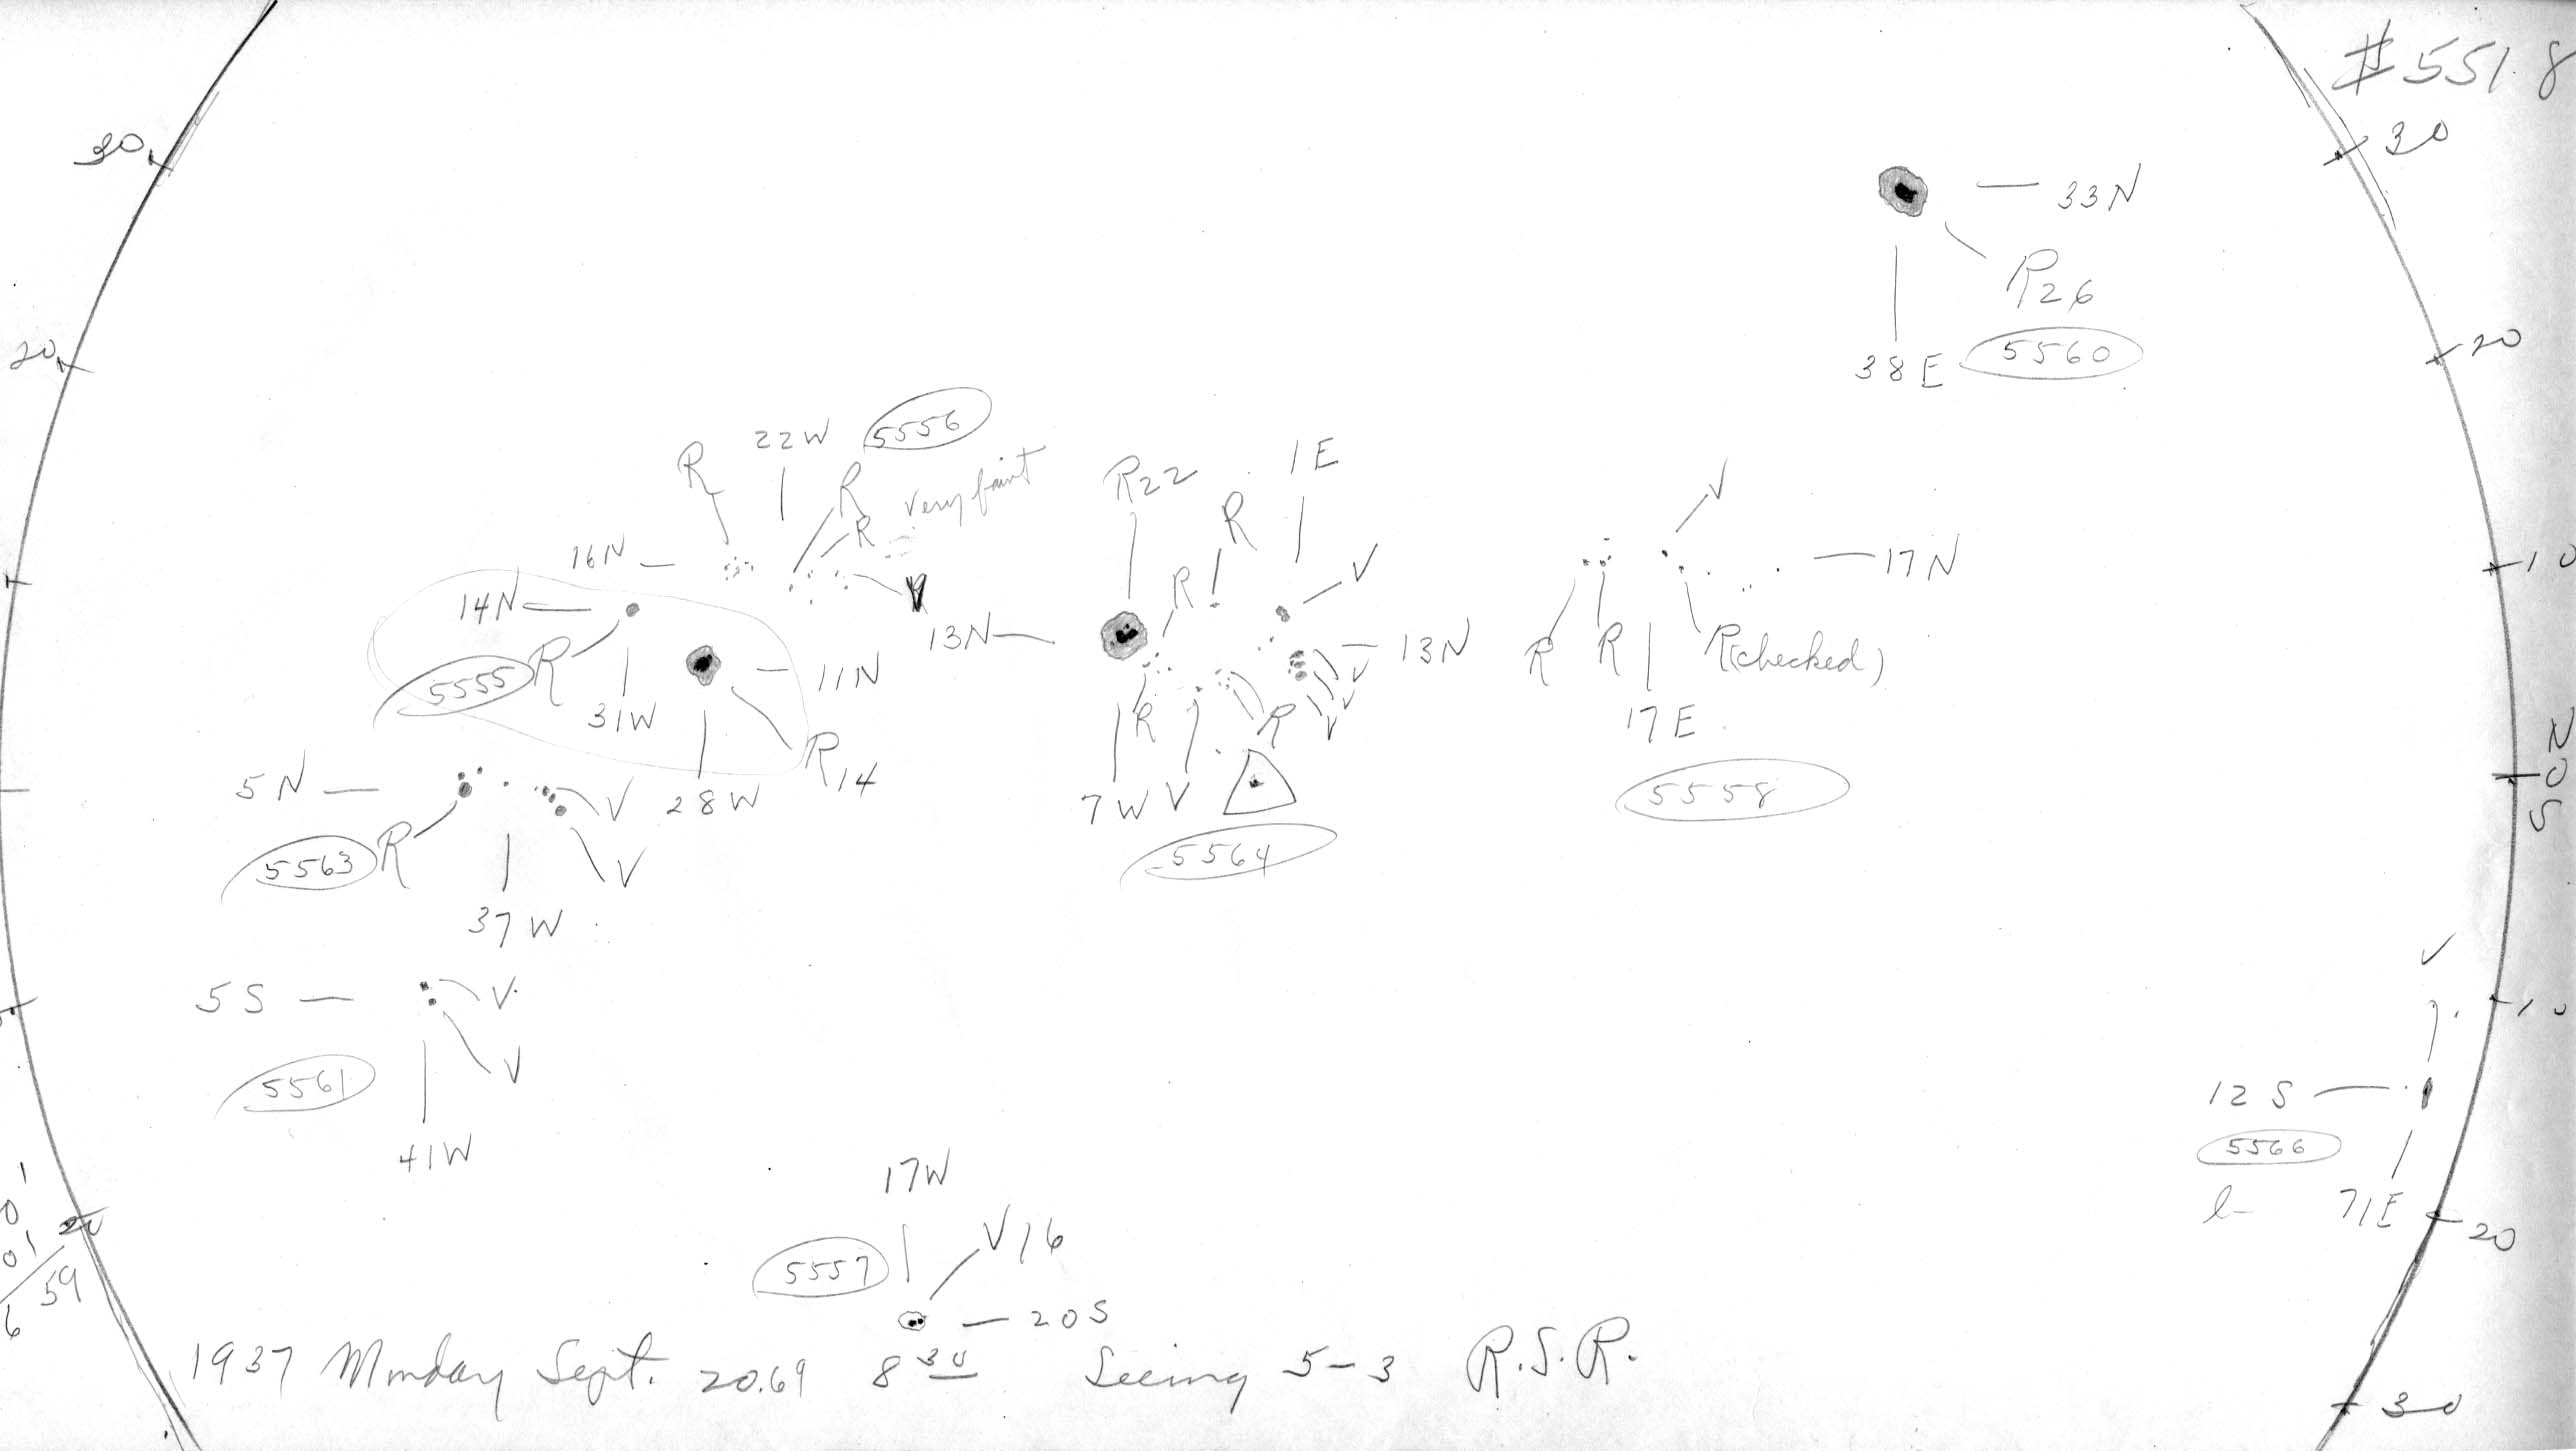 #5518
30
30
33N
R26
20
20
38E
5560
22W
5556
R
R
R
very faint
R22
1E
R
V
16N
R
V
17N
10
14N
13N
13N
V
V
V
R
R
R(checked)
5555
R
31W
11N
R
R
17E
N
0
S
5N
V
28W
R14
7W
V
5558
5563
R
V
5564
37W
5S
V
V
10
V
12S
5561
5566
41W
71E
20
20
17W
V16
5557
59
20S
1937 Monday Sept. 20.69 8 30 Seeing 5-3 R.S.R.
30